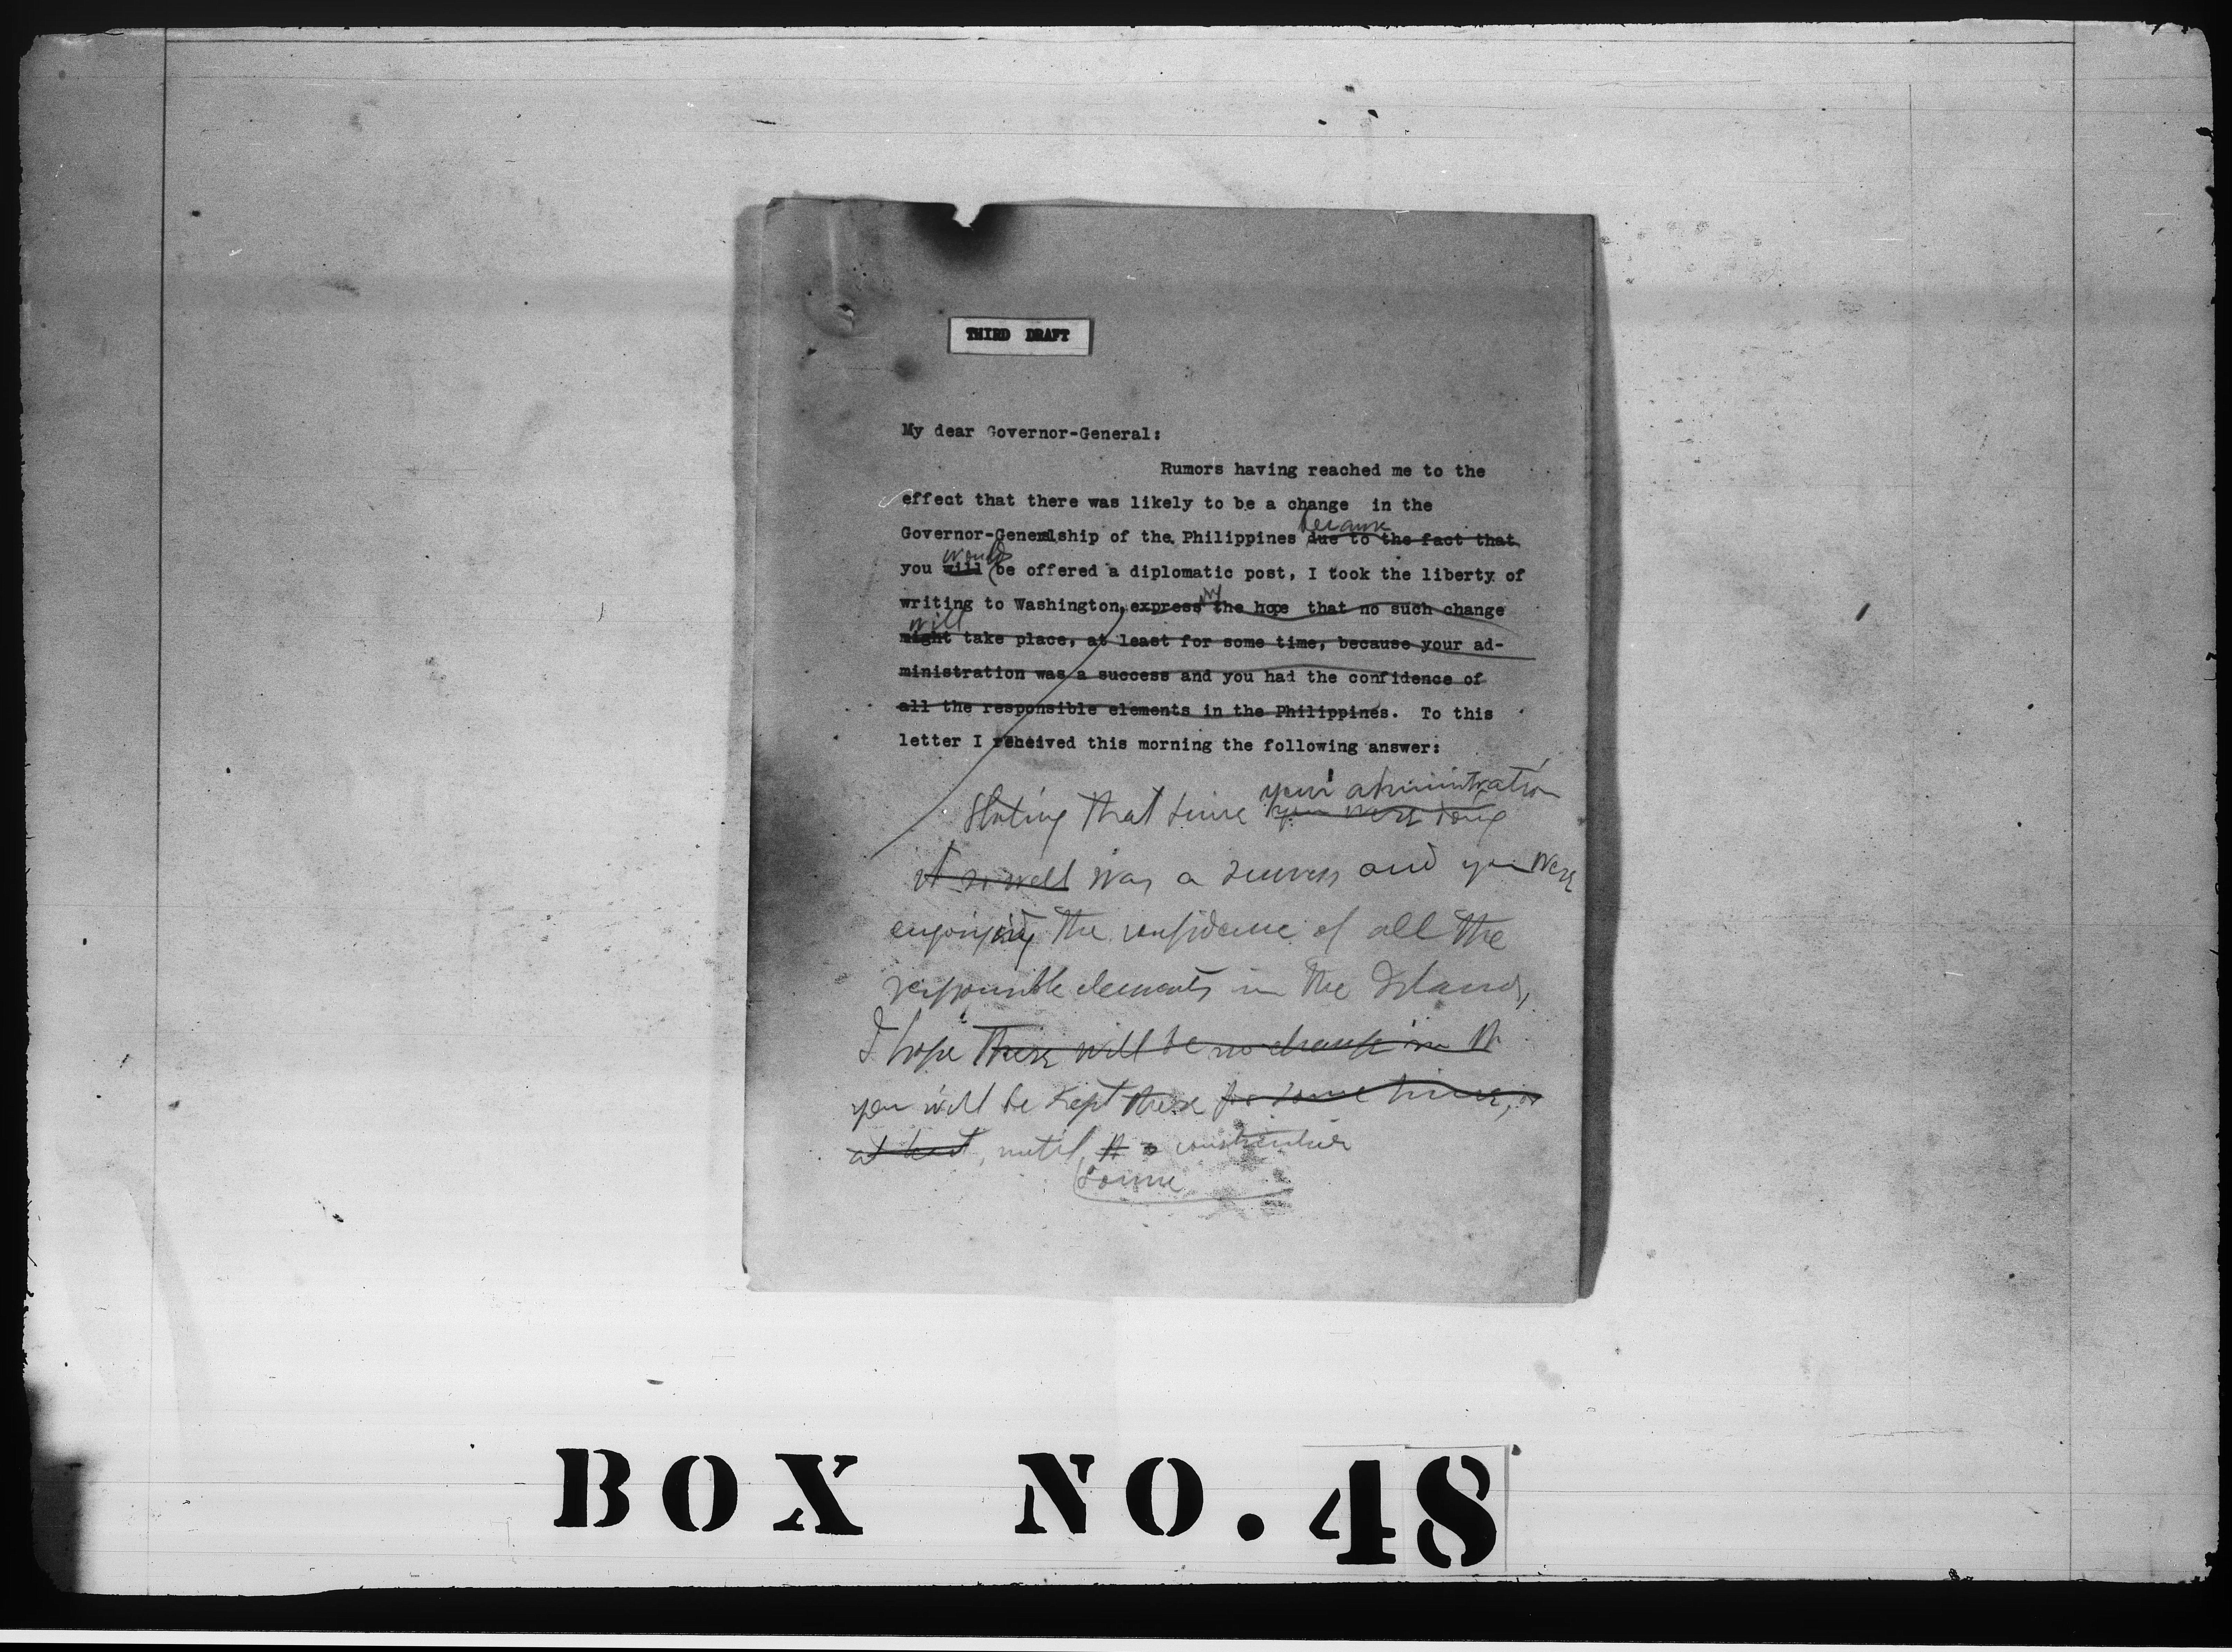 THIRD DRAFT
My dear Governor-General:
Rumors having reached me to the
effect that there was likely to be a change in the
because
Governor-Generalship of the Philippines due to the fact that
would
you will be offered a diplomatic post, I took the liberty of
writing to Washington, express the hope that no such change
will
might take place, at least for some time, because your ad-
ministration was a success and you had the confidence of
all the responsible elements in the Philippines. To this
letter I received this morning the following answer:
your administration
Stating that since you were doing
it so well was a success and you were
enjoying the confidence of all the
responsible elements in the Islands,
I hope there will be no change in
you will be kept there for some time,
at least, until
BOX NO. 48